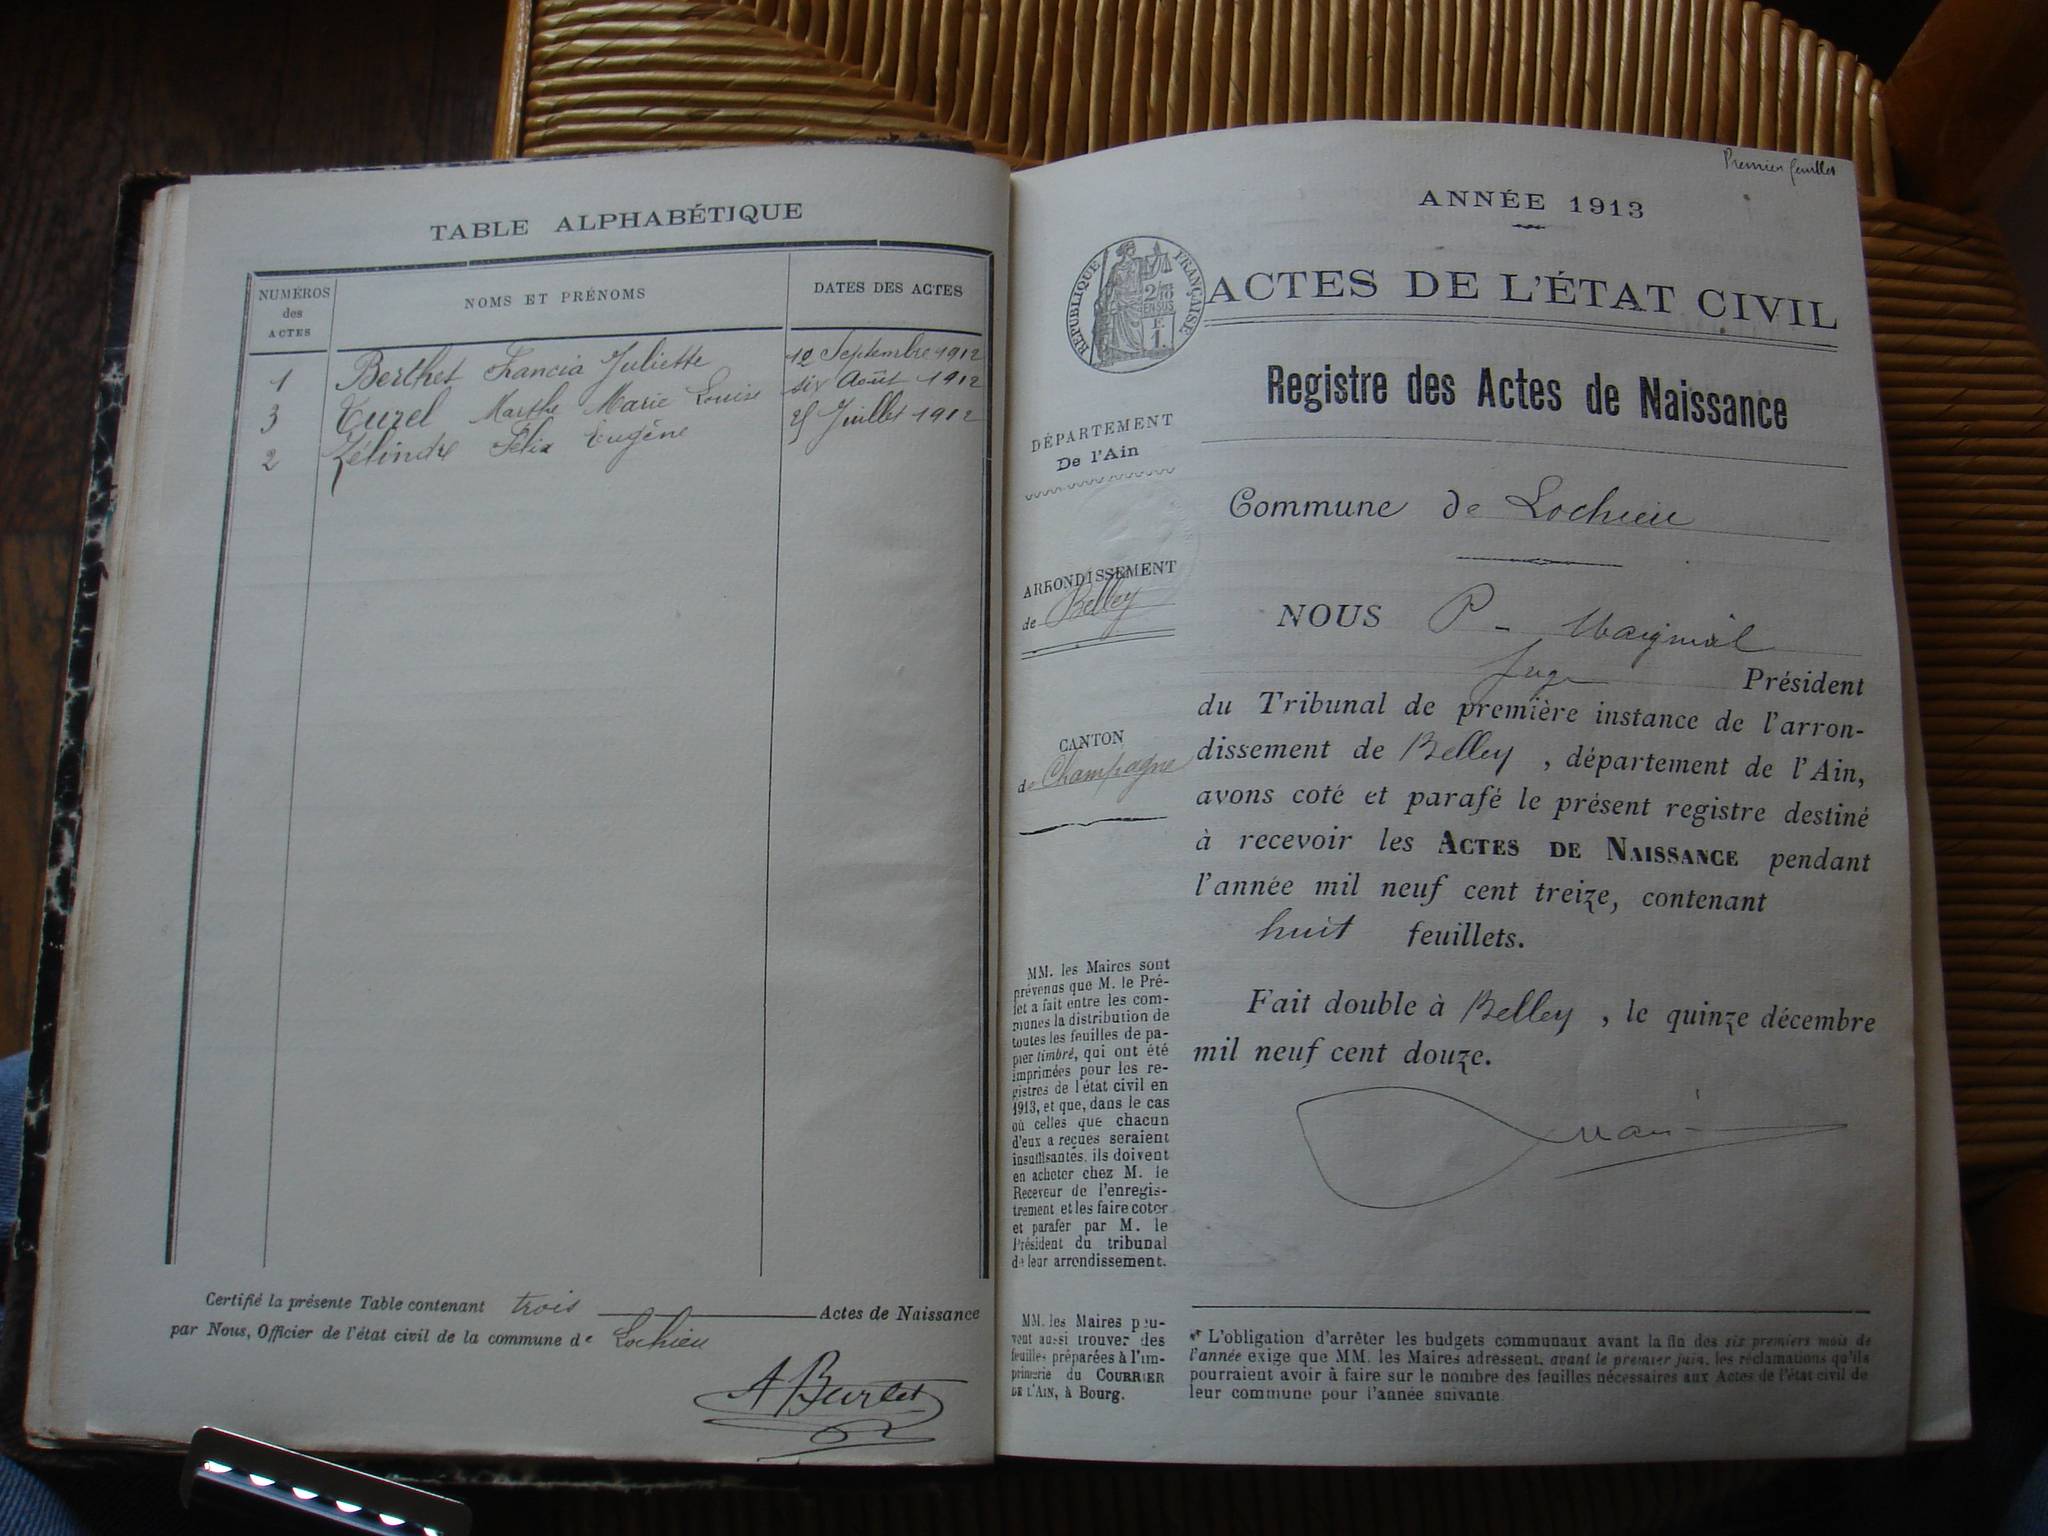 TABLE ALPHABÉTIQUE
NUMÉROS
des
ACTES
NOMS ET PRÉNOMS
DATES DES ACTES
1 Berthet Francia Juliette 12 Septembre 1912
3 Curel Marthe Marie Louise six Août 1912
2 Zélindre Félix Eugène 25 Juillet 1912
Certifié la présente Table contenant trois Actes de Naissance
par Nous, Officier de l'état civil de la commune de Lochieu
A Burlet
Premier feuillet
ANNÉE 1913
RÉPUBLIQUE FRANÇAISE
2/10
EN SUS
F.
1.
ACTES DE L'ÉTAT CIVIL
Registre des Actes de Naissance
DÉPARTEMENT
De l'Ain
Commune de Lochieu
ARRONDISSEMENT
de Belley
CANTON
de Champagne
NOUS P.
Juge Président
du Tribunal de première instance de l'arron-
dissement de Belley, département de l'Ain,
avons coté et parafé le présent registre destiné
à recevoir les ACTES DE NAISSANCE pendant
l'année mil neuf cent treize, contenant
huit feuillets.
Fait double à Belley, le quinze décembre
mil neuf cent douze.
MM. les Maires sont
prévenus que M. le Pré-
fet a fait entre les com-
munes la distribution de
toutes les feuilles de pa-
pier timbré, qui ont été
imprimées pour les re-
gistres de l'état civil en
1913, et que, dans le cas
où celles que chacun
d'eux a reçues seraient
insuffisantes, ils doivent
en acheter chez M. le
Receveur de l'enregis-
trement et les faire coter
et parafer par M. le
Président du tribunal
de leur arrondissement.
MM. les Maires peu-
vent aussi trouver des
feuilles préparées à l'im-
primerie du COURRIER
DE L'AIN, à Bourg.
** L'obligation d'arrêter les budgets communaux avant la fin des six premiers mois de
l'année exige que MM. les Maires adressent, avant le premier juin, les réclamations qu'ils
pourraient avoir à faire sur le nombre des feuilles nécessaires aux Actes de l'état civil de
leur commune pour l'année suivante.